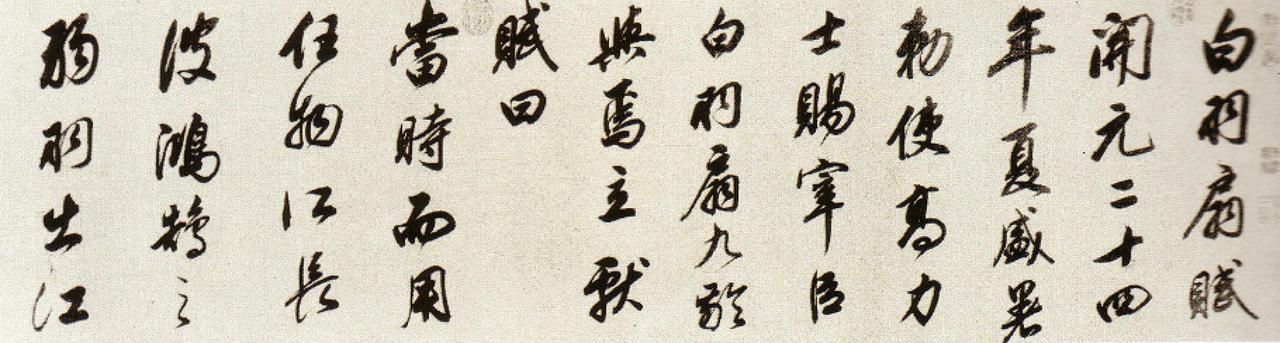 白羽扇賦
開元二十四
年夏盛暑
勅使高力
士賜宰臣
白羽扇九齡
與焉立獻
賦曰
當時而用
任物所長
彼鴻鵠之
弱羽出江